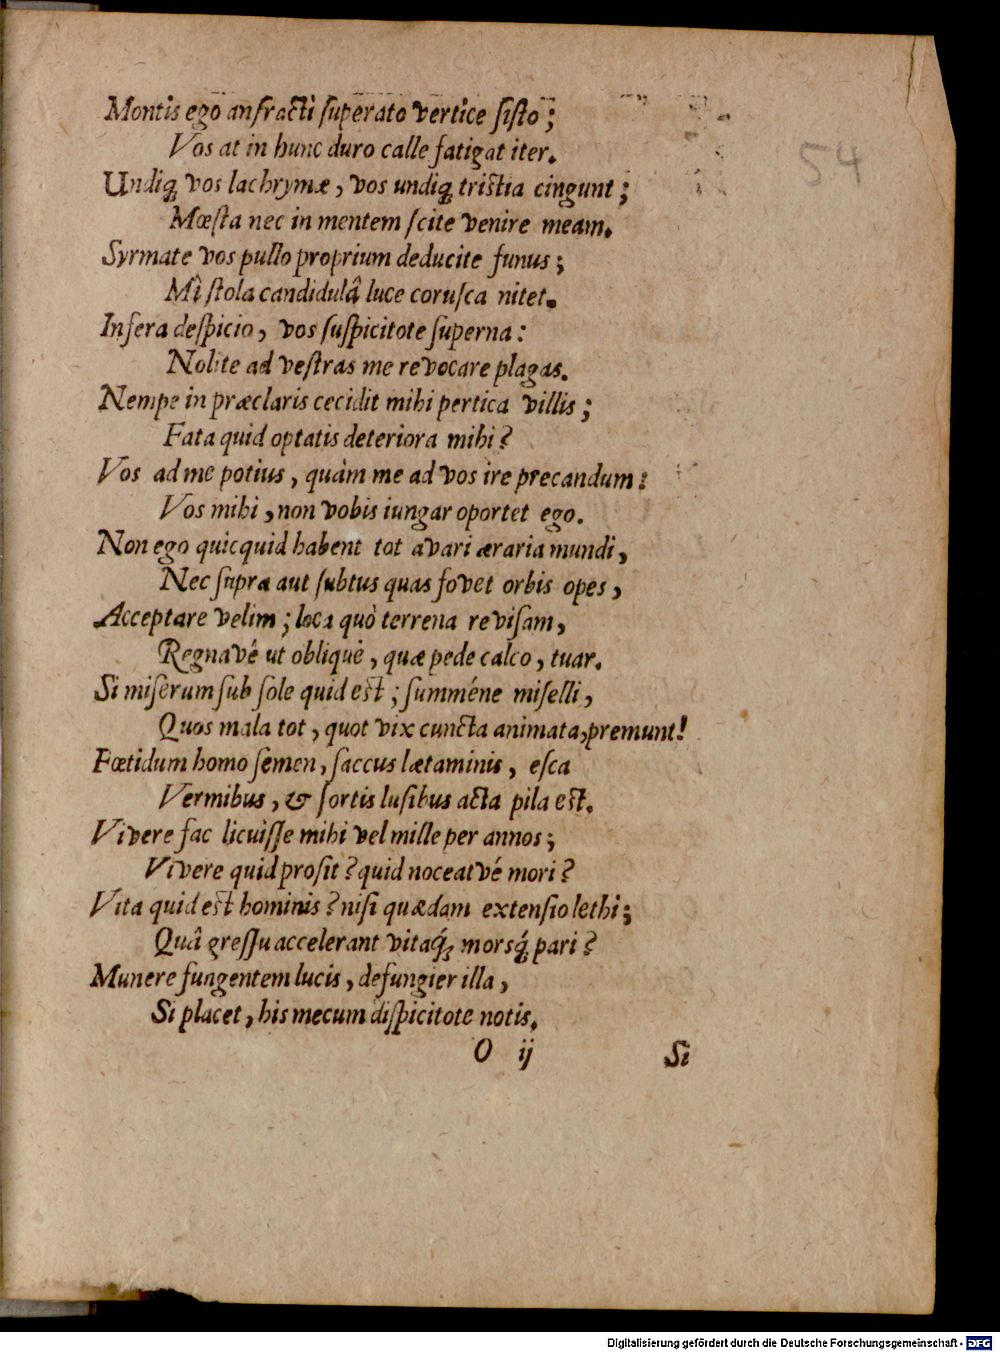 Montis ego anfracti ſuperato vertice ſiſto;
Vos at in hunc duro calle fatigat iter.
Undiq; vos lachrymæ, vos undiq; triſtia cingunt;
Mœſta nec in mentem ſcite venire meam.
Syrmate vos pullo proprium deducite funus;
Mî ſtola candidulâ luce coruſca nitet.
Infera deſpicio, vos ſuſpicitote ſuperna:
Nolite ad veſtras me revocare plagas.
Nempe in præclaris cecidit mihi pertica villis;
Fata quid optatis deteriora mihi?
Vos ad me potius, quàm me ad vos ire precandum:
Vos mihi, non vobis iungar oportet ego.
Non ego quicquid habent tot avari æraria mundi,
Nec ſupra aut ſubtus quas fovet orbis opes,
Acceptare velim; loca quò terrena reviſam,
Regnavé ut obliquè, quæ pede calco, tuar.
Si miſerum ſub ſole quid eſt; ſumméne miſelli,
Quos mala tot, quot vix cuncta animata, premunt!
Fœtidum homo ſemen, ſaccus lætaminis, eſca
Vermibus, & ſortis luſibus acta pila eſt.
Vivere fac licuiſſe mihi vel mille per annos;
Vivere quid proſit? quid noceatvé mori?
Vita quid eſt hominis? niſi quædam extenſio lethi;
Quâ greſſu accelerant vitaq́; morsq́; pari?
Munere fungentem lucis, defungier illa,
Si placet, his mecum diſpicitote notis.
O ij Si
54
Digitalisierung gefördert durch die Deutsche Forschungsgemeinschaft - DFG